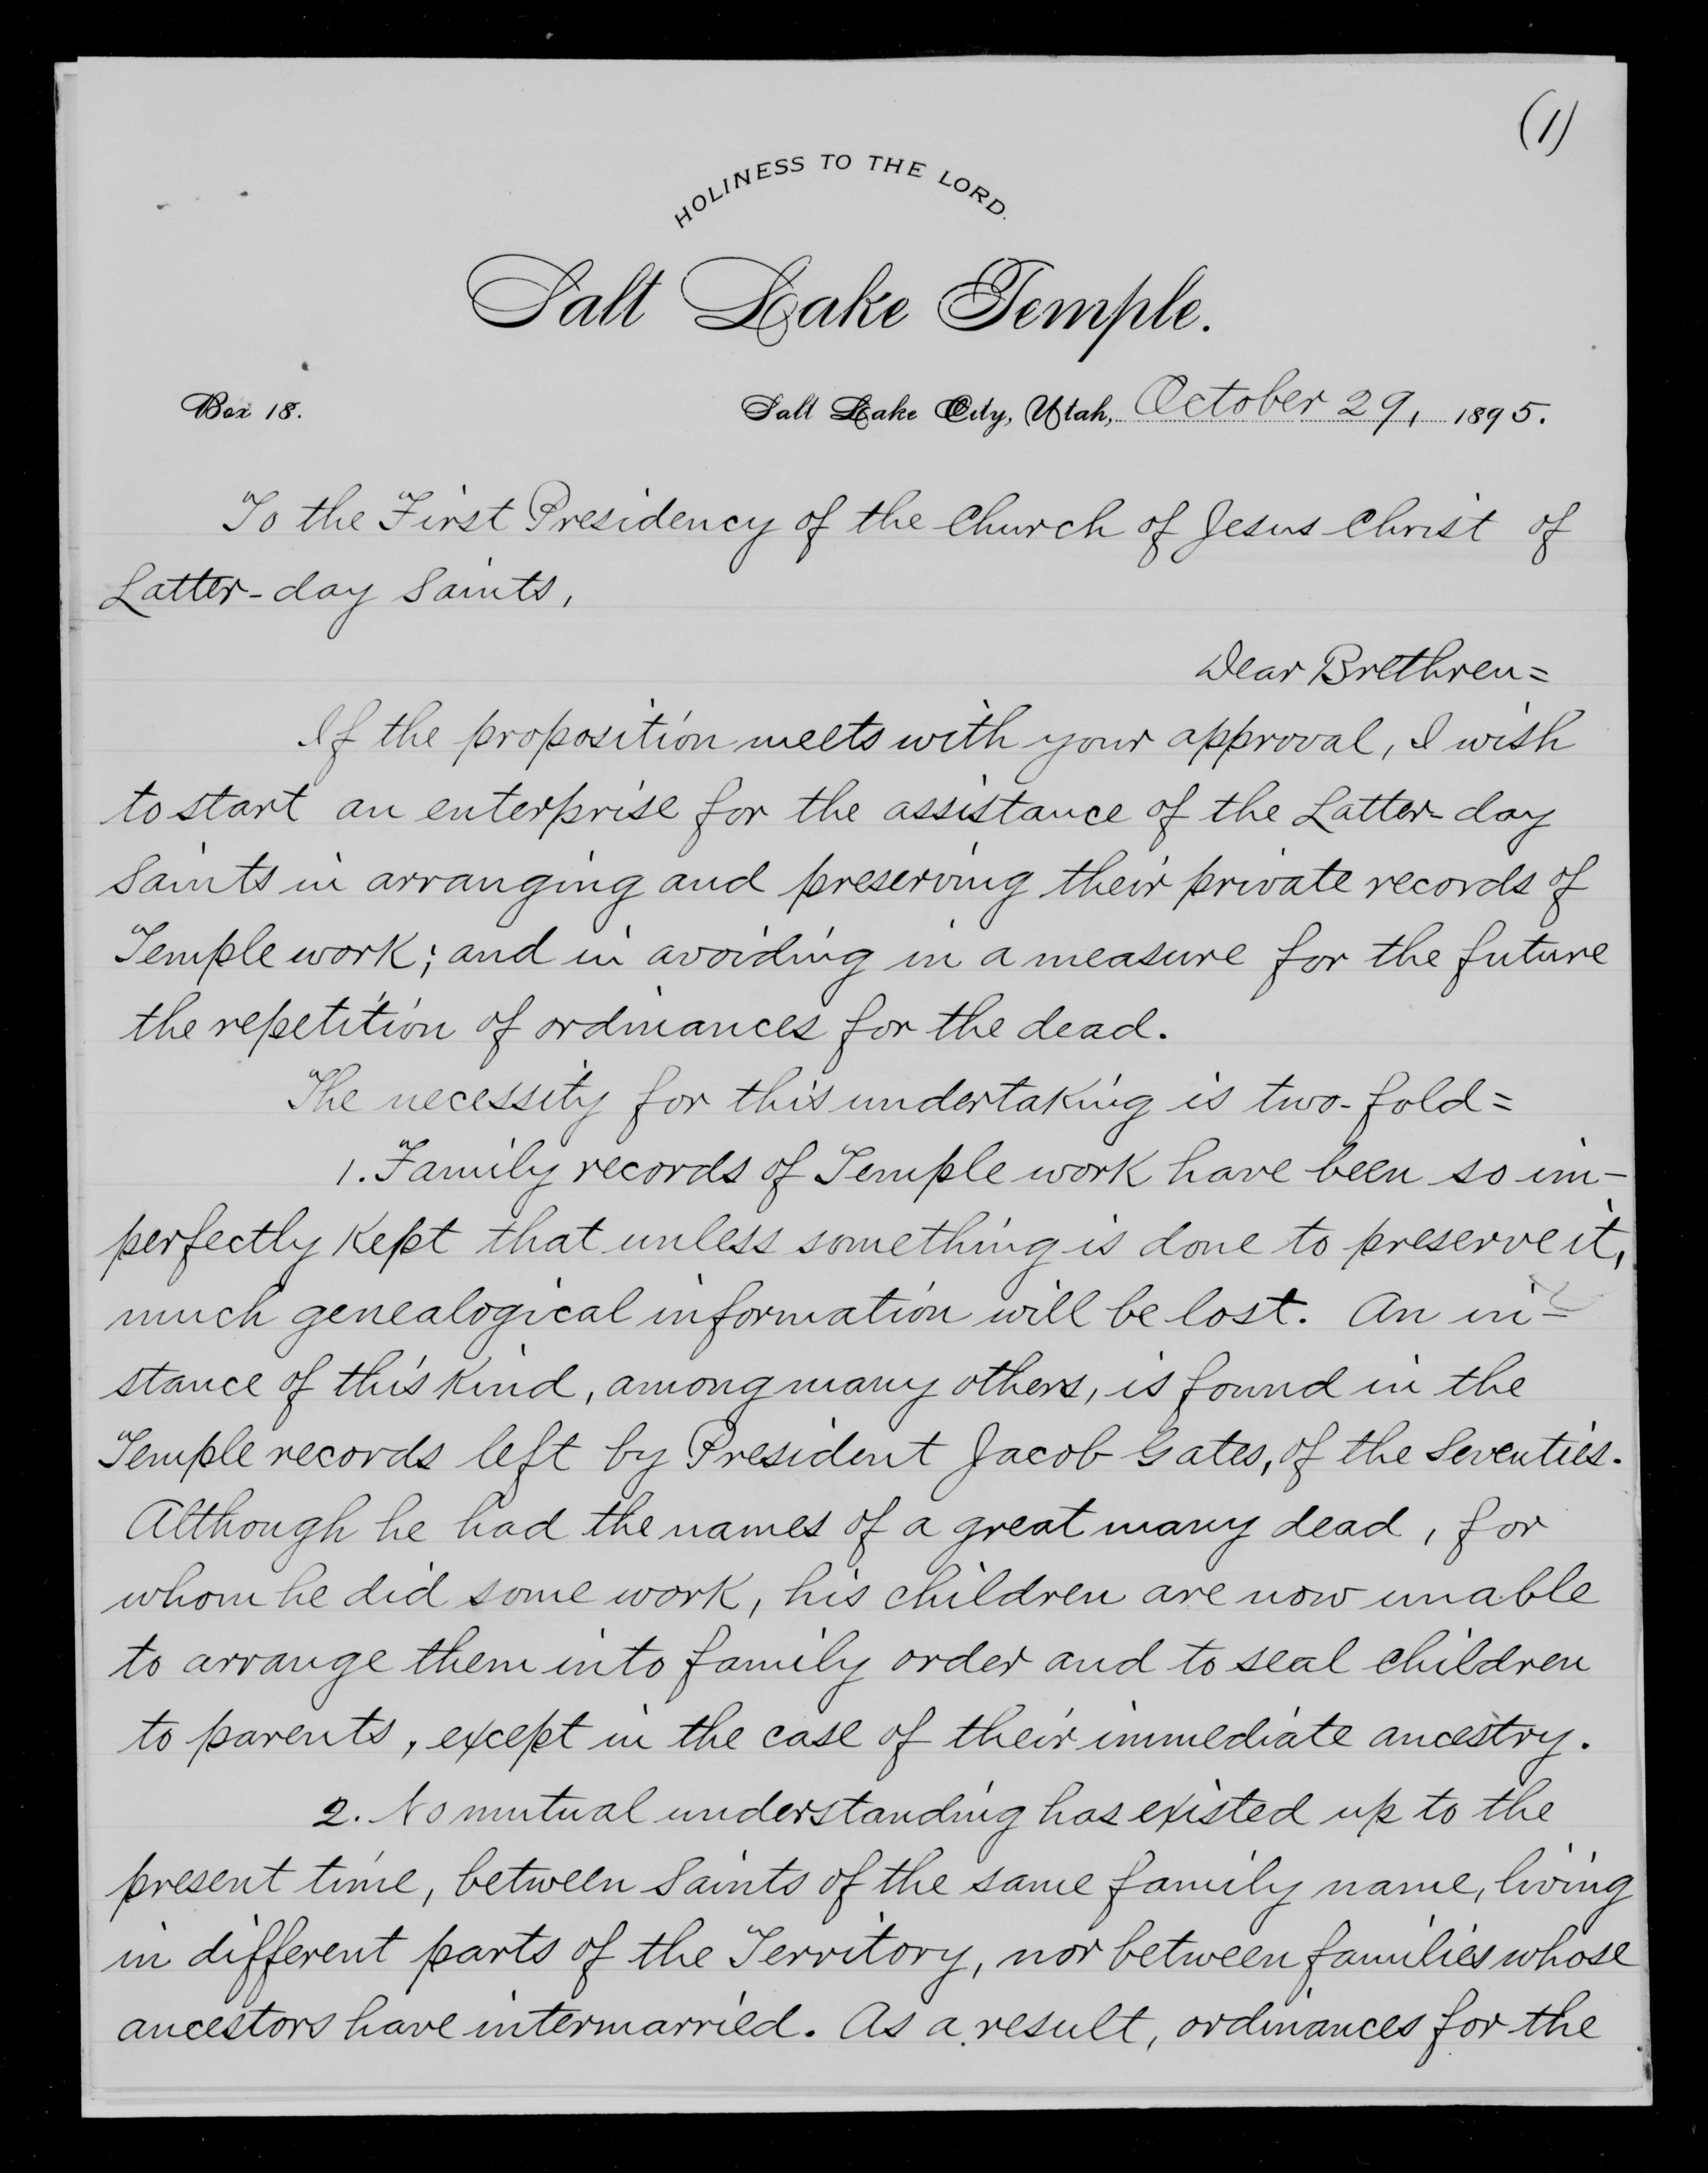 (1)
HOLINESS TO THE LORD.
Salt Lake Temple.
Box 18.
Salt Lake City, Utah, October 29, 1895.
To the First Presidency of the Church of Jesus Christ of
Latter-day Saints,
Dear Brethren=
If the proposition meets with your approval, I wish
to start an enterprise for the assistance of the Latter-day
Saints in arranging and preserving their private records of
Temple work; and in avoiding in a measure for the future
the repetition of ordinances for the dead.
The necessity for this undertaking is two-fold=
1. Family records of Temple work have been so im-
perfectly kept that unless something is done to preserve it,
much genealogical information will be lost. An in-
stance of this kind, among many others, is found in the
Temple records left by President Jacob Gates, of the Seventies.
Although he had the names of a great many dead, for
whom he did some work, his children are now unable
to arrange them into family order and to seal children
to parents, except in the case of their immediate ancestry.
2. No mutual understanding has existed up to the
present time, between Saints of the same family name, living
in different parts of the Territory, nor between families whose
ancestors have intermarried. As a result, ordinances for the